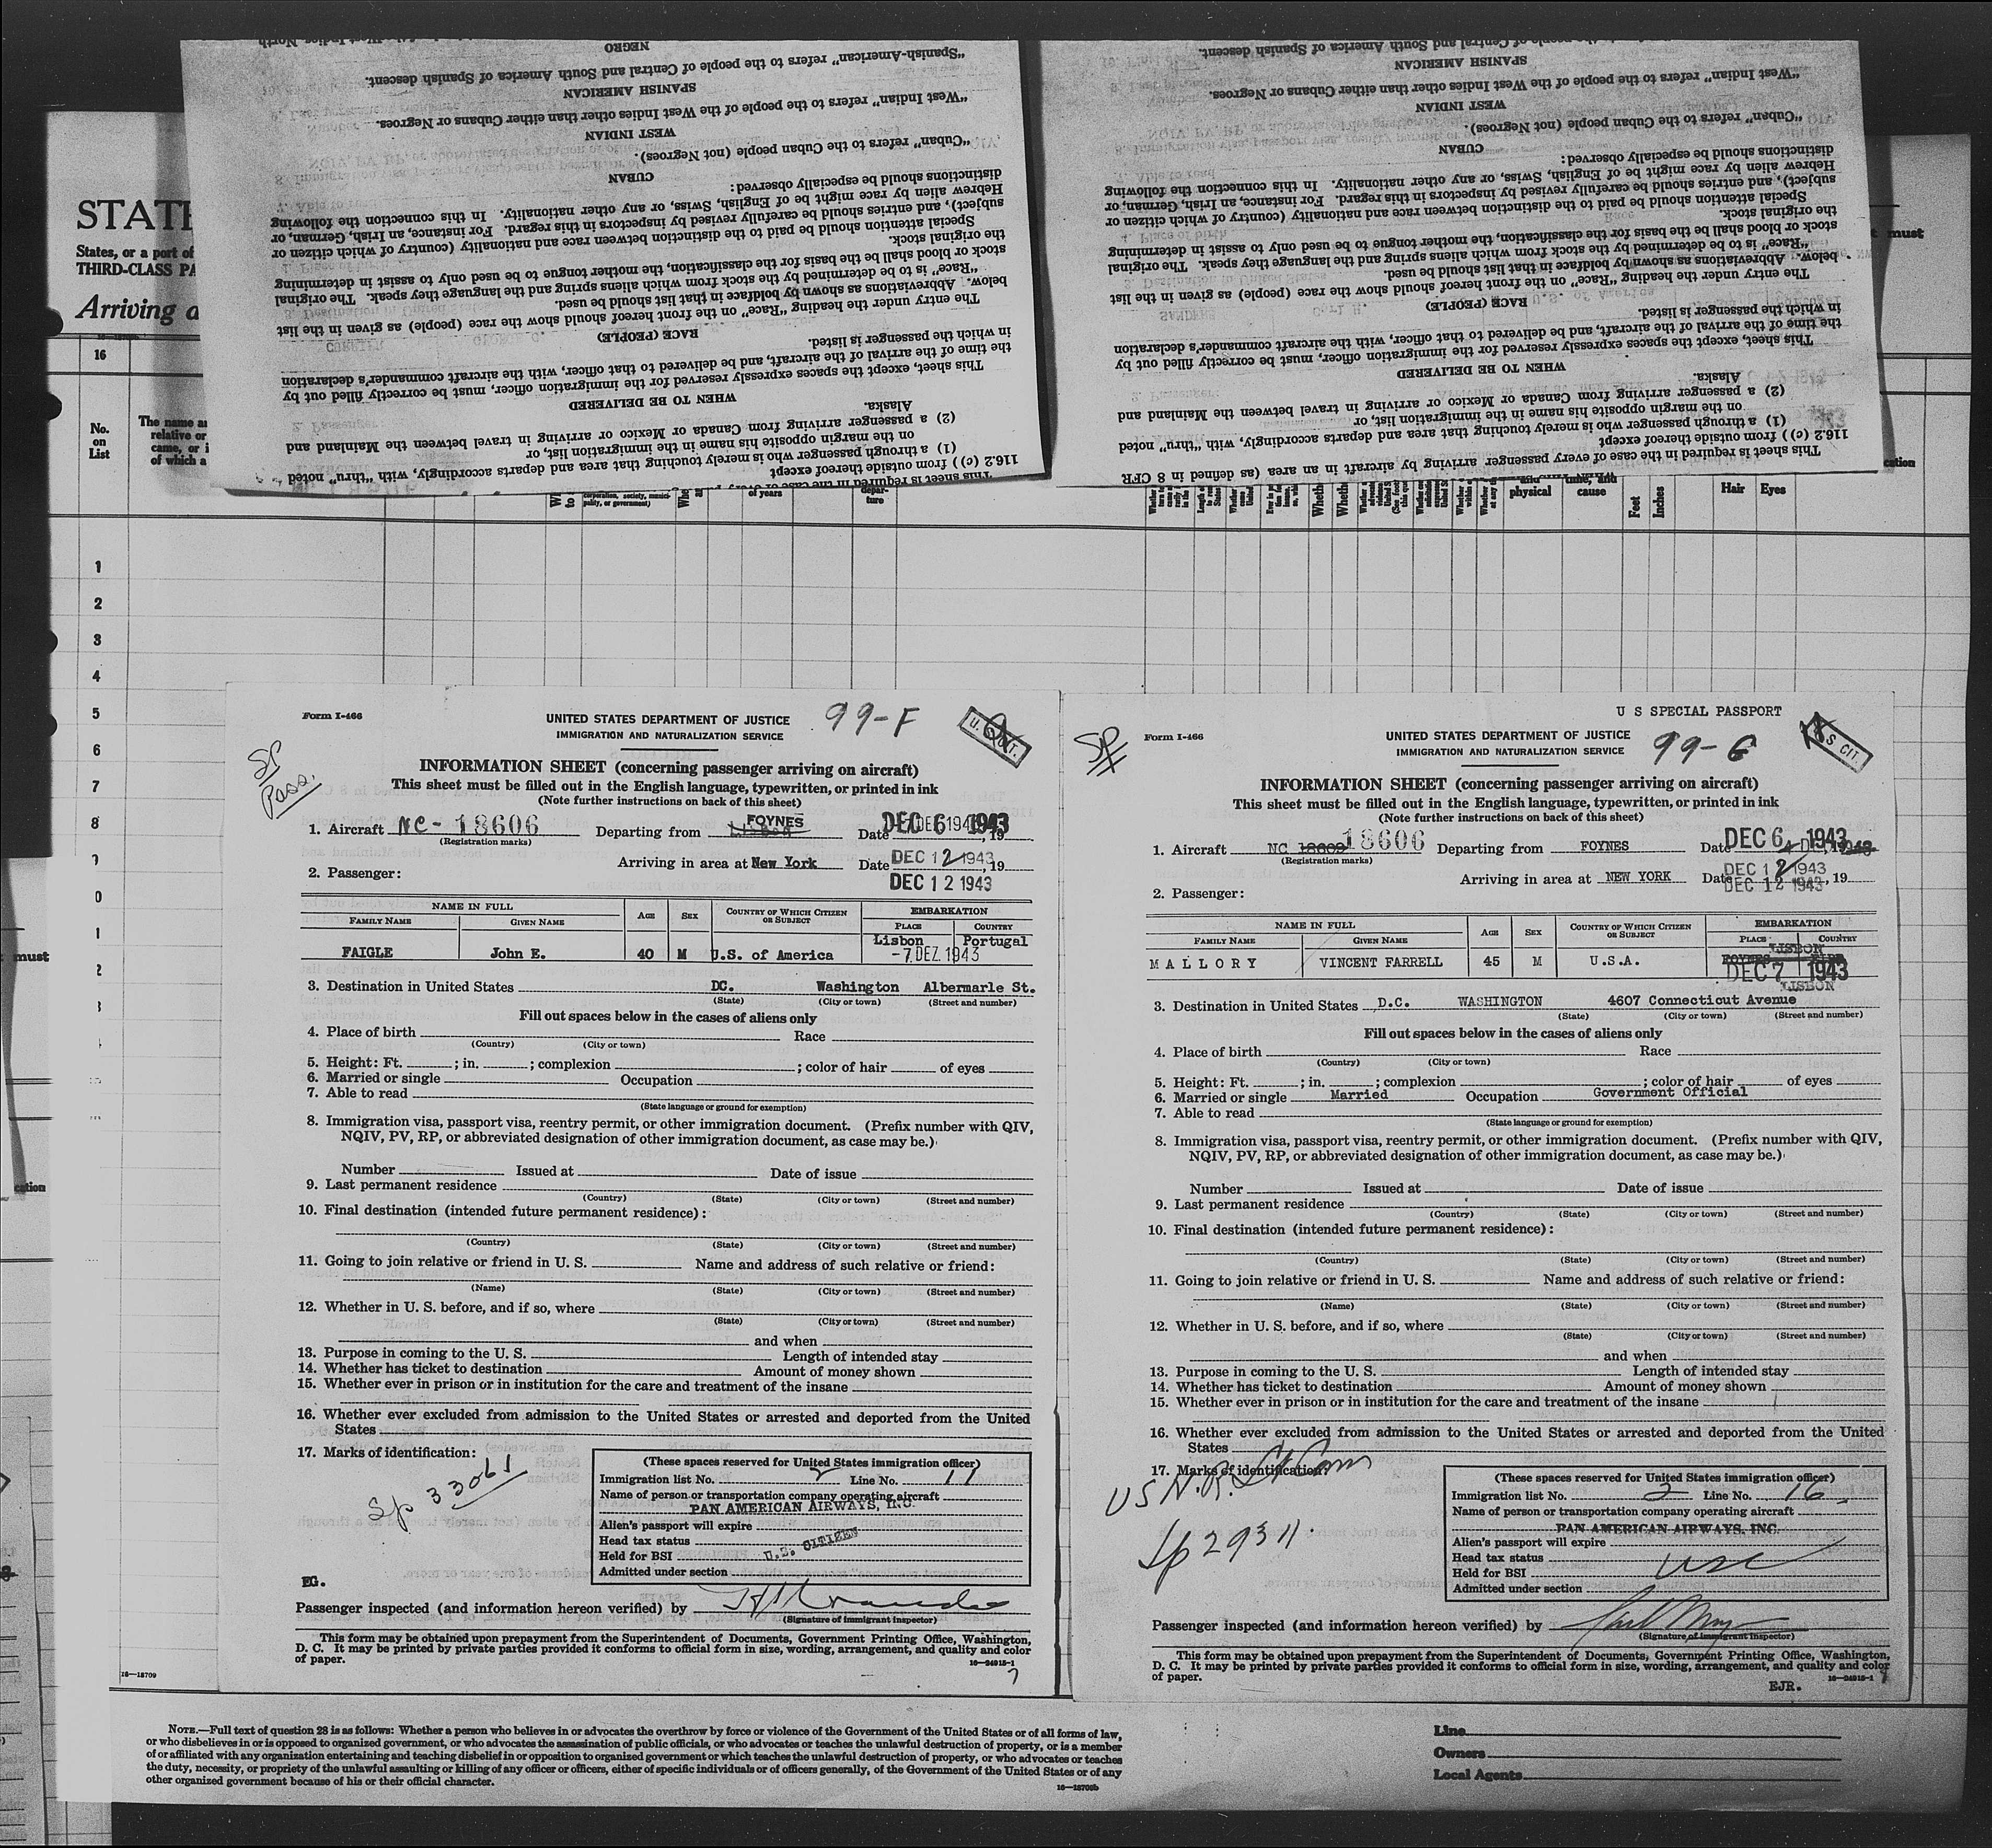 STATE
States, or a part of
THIRD-CLASS PA
Arriving a
16
No.
on
List
The name a
relative or
came, or i
of which a
NEGRO
"Spanish-American" refers to the people of Central and South America of Spanish descent.
SPANISH AMERICAN
"West Indian" refers to the people of the West Indies other than either Cubans or Negroes.
WEST INDIAN
"Cuban" refers to the Cuban people (not Negroes).
CUBAN
distinctions should be especially observed:
Hebrew alien by race might be of English, Swiss, or any other nationality. In this connection the following
subject), and entries should be carefully revised by inspectors in this regard. For instance, an Irish, German, or
Special attention should be paid to the distinction between race and nationality (country of which citizen or
the original stock.
stock or blood shall be the basis for the classification, the mother tongue to be used only to assist in determining
"Race" is to be determined by the stock from which aliens spring and the language they speak. The original
below. Abbreviations as shown by boldface in that list should be used.
The entry under the heading "Race" on the front hereof should show the race (people) as given in the list
RACE (PEOPLE)
in which the passenger is listed.
the time of the arrival of the aircraft, and be delivered to that officer, with the aircraft commander's declaration
This sheet, except the spaces expressly reserved for the immigration officer, must be correctly filled out by
WHEN TO BE DELIVERED
Alaska.
(2) a passenger arriving from Canada or Mexico or arriving in travel between the Mainland and
on the margin opposite his name in the immigration list, or
(1) a through passenger who is merely touching that area and departs accordingly, with "thru" noted
116.2 (c)) from outside thereof except
This sheet is required in the case of every
of Central and South America of Spanish descent.
SPANISH AMERICAN
"West Indian" refers to the people of the West Indies other than either Cubans or Negroes.
WEST INDIAN
"Cuban" refers to the Cuban people (not Negroes).
CUBAN
distinctions should be especially observed:
Hebrew alien by race might be of English, Swiss, or any other nationality. In this connection the following
subject), and entries should be carefully revised by inspectors in this regard. For instance, an Irish, German, or
Special attention should be paid to the distinction between race and nationality (country of which citizen or
the original stock.
stock or blood shall be the basis for the classification, the mother tongue to be used only to assist in determining
"Race" is to be determined by the stock from which aliens spring and the language they speak. The original
below. Abbreviations as shown by boldface in that list should be used.
The entry under the heading "Race" on the front hereof should show the race (people) as given in the list
RACE (PEOPLE)
in which the passenger is listed.
the time of the arrival of the aircraft, and be delivered to that officer, with the aircraft commander's declaration
This sheet, except the spaces expressly reserved for the immigration officer, must be correctly filled out by
WHEN TO BE DELIVERED
Alaska.
(2) a passenger arriving from Canada or Mexico or arriving in travel between the Mainland and
on the margin opposite his name in the immigration list, or
(1) a through passenger who is merely touching that area and departs accordingly, with "thru" noted
116.2 (c)) from outside thereof except
This sheet is required in the case of every passenger arriving by aircraft in an area (as defined in 8 CFR
must
cation
of years
depar-
ture
physical
cause
Feet
Inches
Hair Eyes
1
2
3
4
5
6
7
8
must
cation
Form I-466
UNITED STATES DEPARTMENT OF JUSTICE
99-F
IMMIGRATION AND NATURALIZATION SERVICE
SP
Pass.
INFORMATION SHEET (concerning passenger arriving on aircraft)
This sheet must be filled out in the English language, typewritten, or printed in ink
(Note further instructions on back of this sheet)
1. Aircraft NC-18606 Departing from Lisbon FOYNES Date DEC 6 1943, 19
(Registration marks)
Arriving in area at New York Date DEC 12 1943, 19
2. Passenger: DEC 12 1943
NAME IN FULL
FAMILY NAME GIVEN NAME AGE SEX COUNTRY OF WHICH CITIZEN OR SUBJECT EMBARKATION
PLACE COUNTRY
Lisbon Portugal
FAIGLE John E. 40 M U.S. of America -7 DEZ. 1943
3. Destination in United States DC. Washington Albermarle St.
(State) (City or town) (Street and number)
Fill out spaces below in the cases of aliens only
4. Place of birth Race
(Country) (City or town)
5. Height: Ft. ; in. ; complexion ; color of hair of eyes
6. Married or single Occupation
7. Able to read
(State language or ground for exemption)
8. Immigration visa, passport visa, reentry permit, or other immigration document. (Prefix number with QIV,
NQIV, PV, RP, or abbreviated designation of other immigration document, as case may be.)
Number Issued at Date of issue
9. Last permanent residence
(Country) (State) (City or town) (Street and number)
10. Final destination (intended future permanent residence):
(Country) (State) (City or town) (Street and number)
11. Going to join relative or friend in U. S. Name and address of such relative or friend:
(Name) (State) (City or town) (Street and number)
12. Whether in U. S. before, and if so, where
(State) (City or town) (Street and number)
and when
13. Purpose in coming to the U. S. Length of intended stay
14. Whether has ticket to destination Amount of money shown
15. Whether ever in prison or in institution for the care and treatment of the insane
16. Whether ever excluded from admission to the United States or arrested and deported from the United
States
17. Marks of identification:
Sp 33061
(These spaces reserved for United States immigration officer)
Immigration list No. 2 Line No. 17
Name of person or transportation company operating aircraft
PAN AMERICAN AIRWAYS, INC.
Alien's passport will expire
Head tax status
Held for BSI U.S. CITIZEN
Admitted under section
EG.
Passenger inspected (and information hereon verified) by
(Signature of immigrant inspector)
This form may be obtained upon prepayment from the Superintendent of Documents, Government Printing Office, Washington,
D. C. It may be printed by private parties provided it conforms to official form in size, wording, arrangement, and quality and color
of paper.
16—24915-1
7
16—18709
U S SPECIAL PASSPORT
SP
Form I-466
UNITED STATES DEPARTMENT OF JUSTICE
U S CIT.
IMMIGRATION AND NATURALIZATION SERVICE
99-G
INFORMATION SHEET (concerning passenger arriving on aircraft)
This sheet must be filled out in the English language, typewritten, or printed in ink
(Note further instructions on back of this sheet)
1. Aircraft NC 18609 18606 Departing from FOYNES Date DEC 6 1943
(Registration marks)
Arriving in area at NEW YORK Date DEC 12 1943, 19
DEC 12 1943
2. Passenger:
NAME IN FULL
FAMILY NAME GIVEN NAME AGE SEX COUNTRY OF WHICH CITIZEN OR SUBJECT EMBARKATION
PLACE COUNTRY
LISBON
MALLORY VINCENT FARRELL 45 M U.S.A. FOYNES EIRE
DEC 7 1943
LISBON
3. Destination in United States D.C. WASHINGTON 4607 Connecticut Avenue
(State) (City or town) (Street and number)
Fill out spaces below in the cases of aliens only
4. Place of birth Race
(Country) (City or town)
5. Height: Ft. ; in. ; complexion ; color of hair of eyes
6. Married or single Married Occupation Government Official
7. Able to read
(State language or ground for exemption)
8. Immigration visa, passport visa, reentry permit, or other immigration document. (Prefix number with QIV,
NQIV, PV, RP, or abbreviated designation of other immigration document, as case may be.)
Number Issued at Date of issue
9. Last permanent residence
(Country) (State) (City or town) (Street and number)
10. Final destination (intended future permanent residence):
(Country) (State) (City or town) (Street and number)
11. Going to join relative or friend in U. S. Name and address of such relative or friend:
(Name) (State) (City or town) (Street and number)
12. Whether in U. S. before, and if so, where
(State) (City or town) (Street and number)
and when
13. Purpose in coming to the U. S. Length of intended stay
14. Whether has ticket to destination Amount of money shown
15. Whether ever in prison or in institution for the care and treatment of the insane
16. Whether ever excluded from admission to the United States or arrested and deported from the United
States
17. Marks of identification:
USN.R. Lt Com
Sp 29311.
(These spaces reserved for United States immigration officer)
Immigration list No. 2 Line No. 16
Name of person or transportation company operating aircraft
PAN AMERICAN AIRWAYS, INC.
Alien's passport will expire
Head tax status
Held for BSI USC
Admitted under section
Passenger inspected (and information hereon verified) by
(Signature of immigrant inspector)
This form may be obtained upon prepayment from the Superintendent of Documents, Government Printing Office, Washington,
D. C. It may be printed by private parties provided it conforms to official form in size, wording, arrangement, and quality and color
of paper.
16—24915-1
EJR.
NOTE.—Full text of question 28 is as follows: Whether a person who believes in or advocates the overthrow by force or violence of the Government of the United States or of all forms of law,
or who disbelieves in or is opposed to organized government, or who advocates the assassination of public officials, or who advocates or teaches the unlawful destruction of property, or is a member
of or affiliated with any organization entertaining and teaching disbelief in or opposition to organized government or which teaches the unlawful destruction of property, or who advocates or teaches
the duty, necessity, or propriety of the unlawful assaulting or killing of any officer or officers, either of specific individuals or of officers generally, of the Government of the United States or of any
other organized government because of his or their official character.
16—18709b
Line
Owners
Local Agents